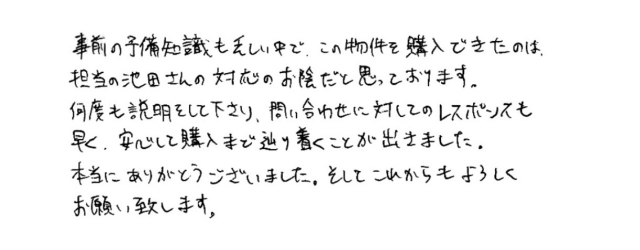 事前の予備知識も乏しい中で、この物件を購入できたのは、
担当の池田さんの対応のお陰だと思っております。
何度も説明をして下さり、問い合わせに対してのレスポンスも
早く、安心して購入まで辿り着くことが出きました。
本当にありがとうございました。そしてこれからもよろしく
お願い致します。